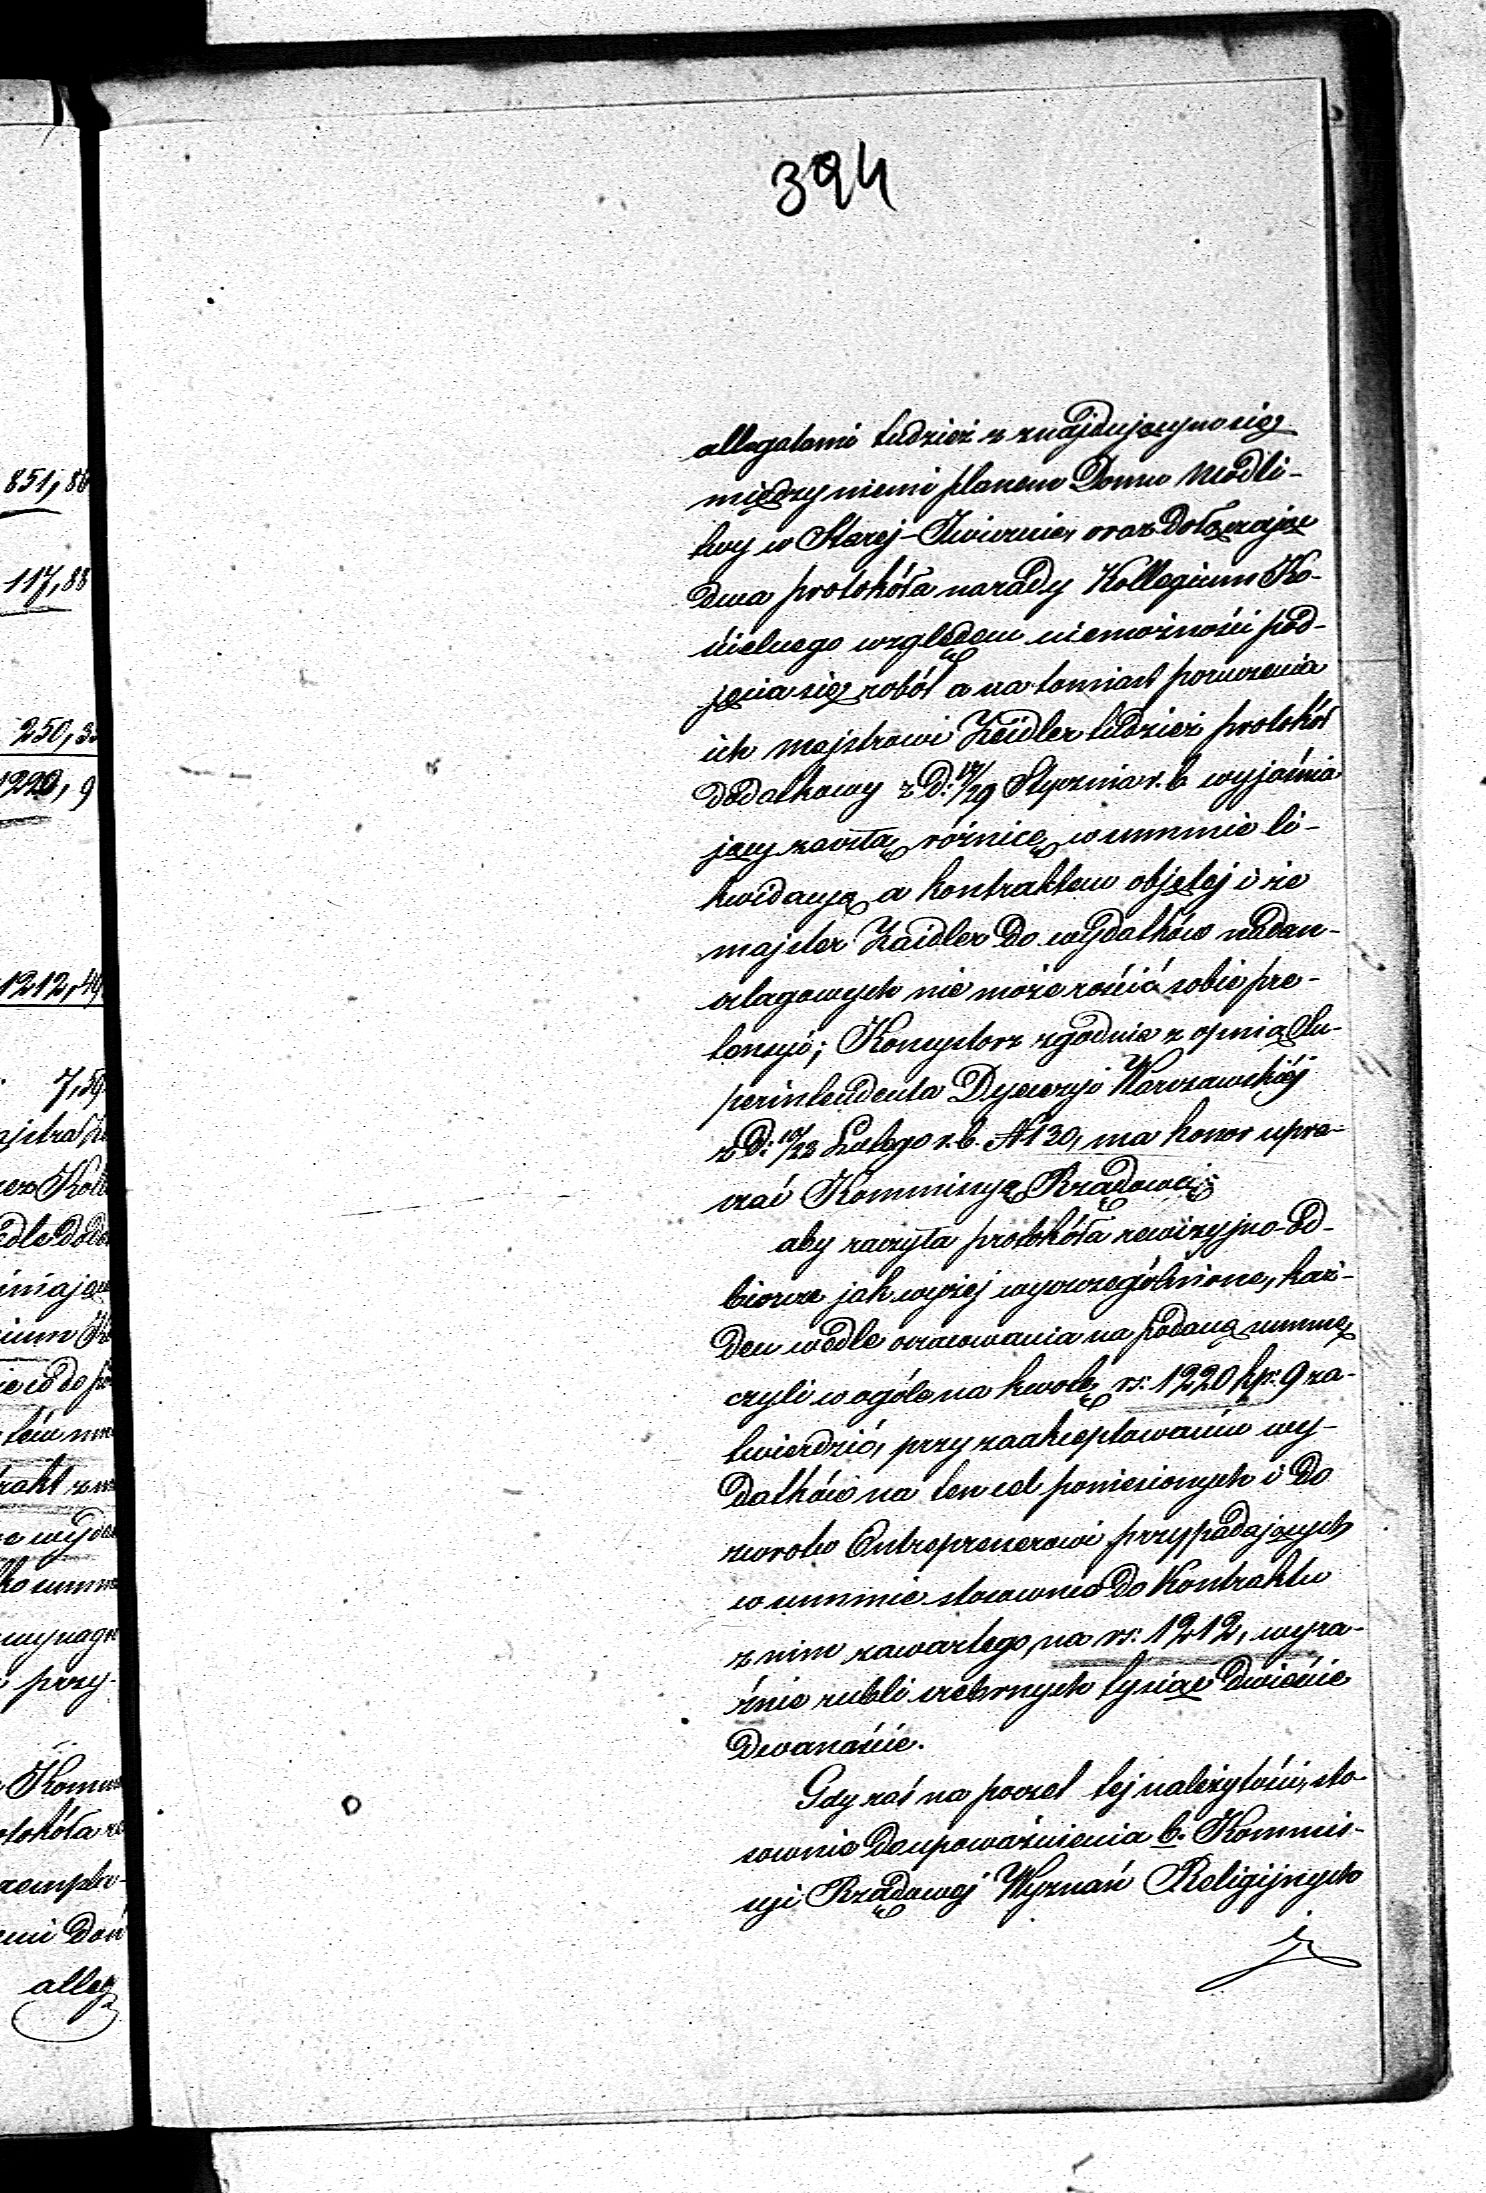 394
allegatami tudzież z znajdującym się
między niemi planem Domu Modli-
twy w Starej-Iwicznie, oraz dołączając
dwa protokóła narady Kollegium Ko-
ścielnego względem niemożności pod-
jęcia się robót a natomiast poruczenia
ich majstrowi Zeidler tudzież protokół
dodatkowy z d: 17/29 Stycznia r. b. wyjaśnia
jący zaszłą różnicę w summie li-
kwidacyą a kontraktem objętej i że
majster Zaidler do wydatków nadan-
szlagowych nie może rościć sobie pre-
tensyi; Konsystorz zgodnie z opinią Su-
perintendenta Dyecezyi Warszawskiéj
z d: 10/22 Lutego r. b. N 130, ma honor upra-
szać Kommissyą Rządową;
aby raczyła protokóła rewizyjno-od-
biorcze jak wyżej wyszczególnione, każ-
den wedle oszacowania na podaną summę
czyli w ogóle na kwotę rs: 1220 kp: 9 za-
twierdzić, przy zaakceptowaniu wy-
datków na ten cel poniesionych i do
zwrotu Entreprenerowi przypadających
w summie stosownie do Kontraktu
z nim zawartego, na rs: 1212, wyra-
źnie rubli srebrnych tysiąc dwieście
dwanaście.
Gdy zaś na poczet tej należytości, sto-
sownie do upoważnienia b. Kommis-
syi Rządowej Wyznań Religijnych
851, 86
117, 88
250, 35
1220, 9
1212, 49
7, 59
alleg